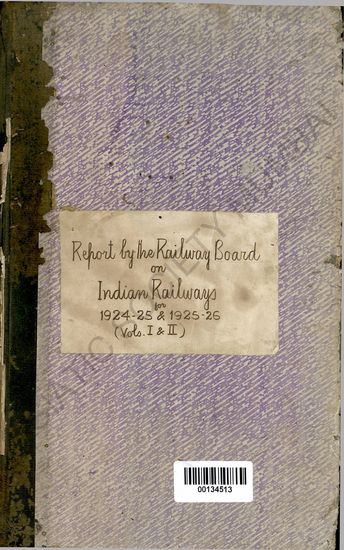 Report by the Railway Board
on
Indian Railways
for
1924-25 & 1925-26
(Vols. I & II)
00134513